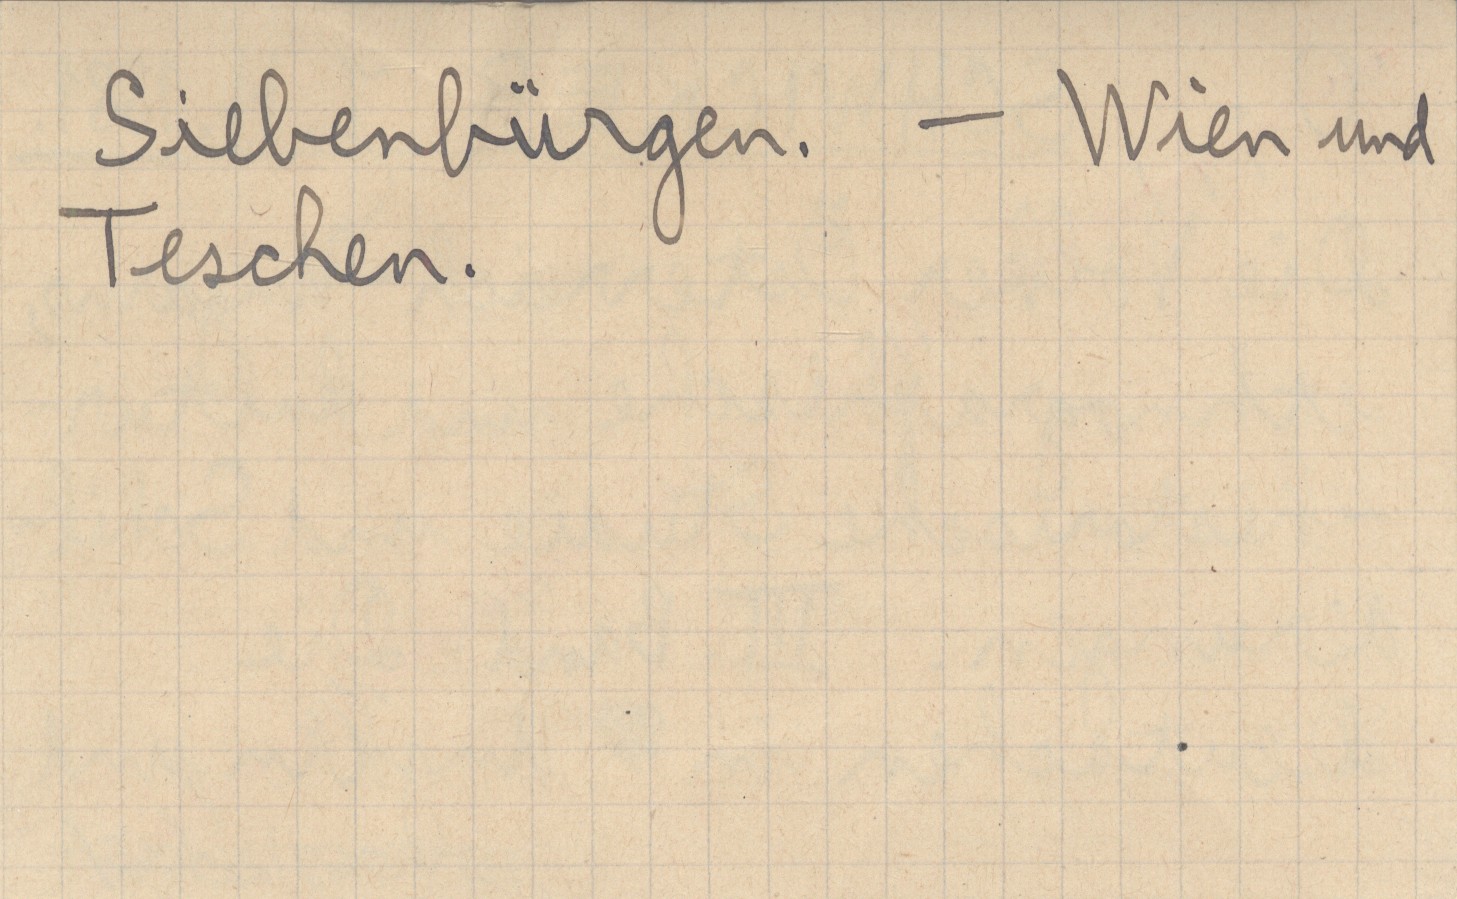 Siebenbürgen. — Wien und
Teschen.